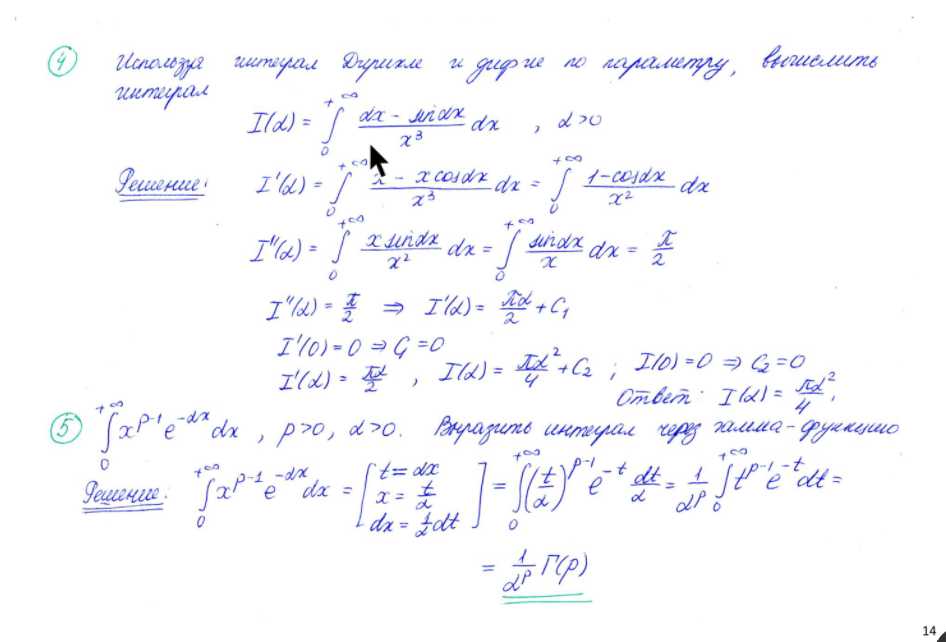 ④ Используя интеграл Дирихле и диф-ие по параметру, вычислить
интеграл
I(α) = ∫₀^{+∞} (αx - sin αx)/x³ dx , α>0
Решение: I'(α) = ∫₀^{+∞} (x - x cos αx)/x³ dx = ∫₀^{+∞} (1-cos αx)/x² dx
I''(α) = ∫₀^{+∞} (x sin αx)/x² dx = ∫₀^{+∞} (sin αx)/x dx = π/2
I''(α) = π/2 ⇒ I'(α) = πα/2 + C₁
I'(0) = 0 ⇒ C₁ = 0
I'(α) = πα/2 , I(α) = πα²/4 + C₂ ; I(0) = 0 ⇒ C₂ = 0
Ответ: I(α) = πα²/4.
⑤ ∫₀^{+∞} x^{p-1} e^{-αx} dx , p>0, α>0. Выразить интеграл через гамма-функцию
Решение: ∫₀^{+∞} x^{p-1} e^{-αx} dx = [t = αx x = t/α dx = 1/α dt] = ∫₀^{+∞} (t/α)^{p-1} e^{-t} dt/α = 1/α^p ∫₀^{+∞} t^{p-1} e^{-t} dt =
= 1/α^p Γ(p)
14